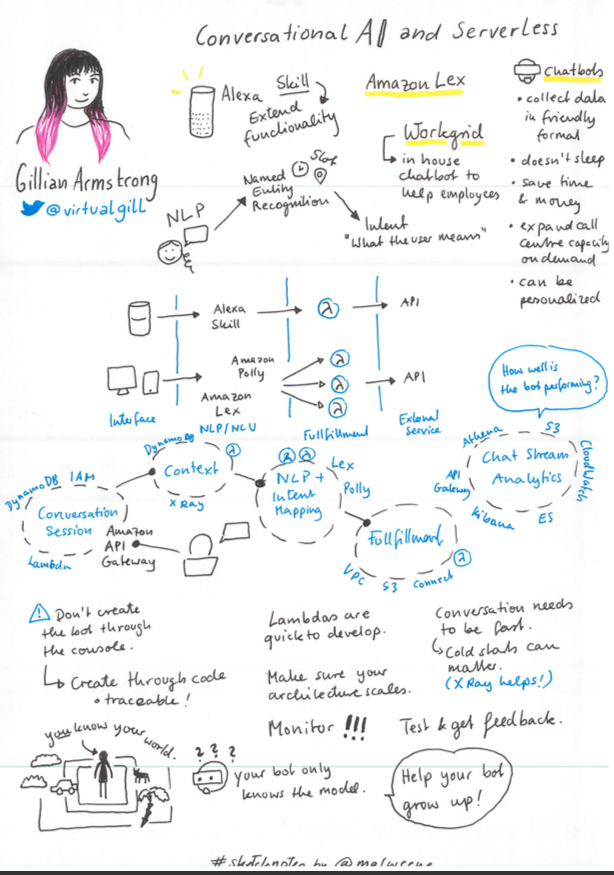 Conversational AI and Serverless
Gillian Armstrong
@virtualgill
Alexa Skill
Extend
functionality
Amazon Lex
Workgrid
in house
chatbot to
help employees
Chatbots
• collect data
in friendly
format
• doesn't sleep
• save time
& money
• expand call
centre capacity
on demand
• can be
personalized
NLP
Named
Entity
Recognition
Slot
Intent
"What the user means"
Alexa
Skill
λ
API
Amazon
Polly
Amazon
Lex
λ
λ
λ
API
Interface
NLP/NLU
Fullfillment
External
Service
How well is
the bot performing?
DynamoDB IAM
Conversation
Session
Lambda
Amazon
API
Gateway
DynamoDB
λ
Context
X Ray
λ λ
NLP +
Intent
Mapping
Lex
Polly
Fullfillment
λ
VPC S3 Connect
Athena S3
CloudWatch
Chat Stream
Analytics
API
Gateway
Kibana ES
! Don't create
the bot through
the console.
Create through code
• traceable!
Lambdas are
quick to develop.
Make sure your
architecture scales.
Conversation needs
to be fast.
Cold starts can
matter.
(X Ray helps!)
Monitor !!!
Test & get feedback.
you know your world.
? ? ?
your bot only
knows the model.
Help your bot
grow up!
#sketchnotes by @malweene